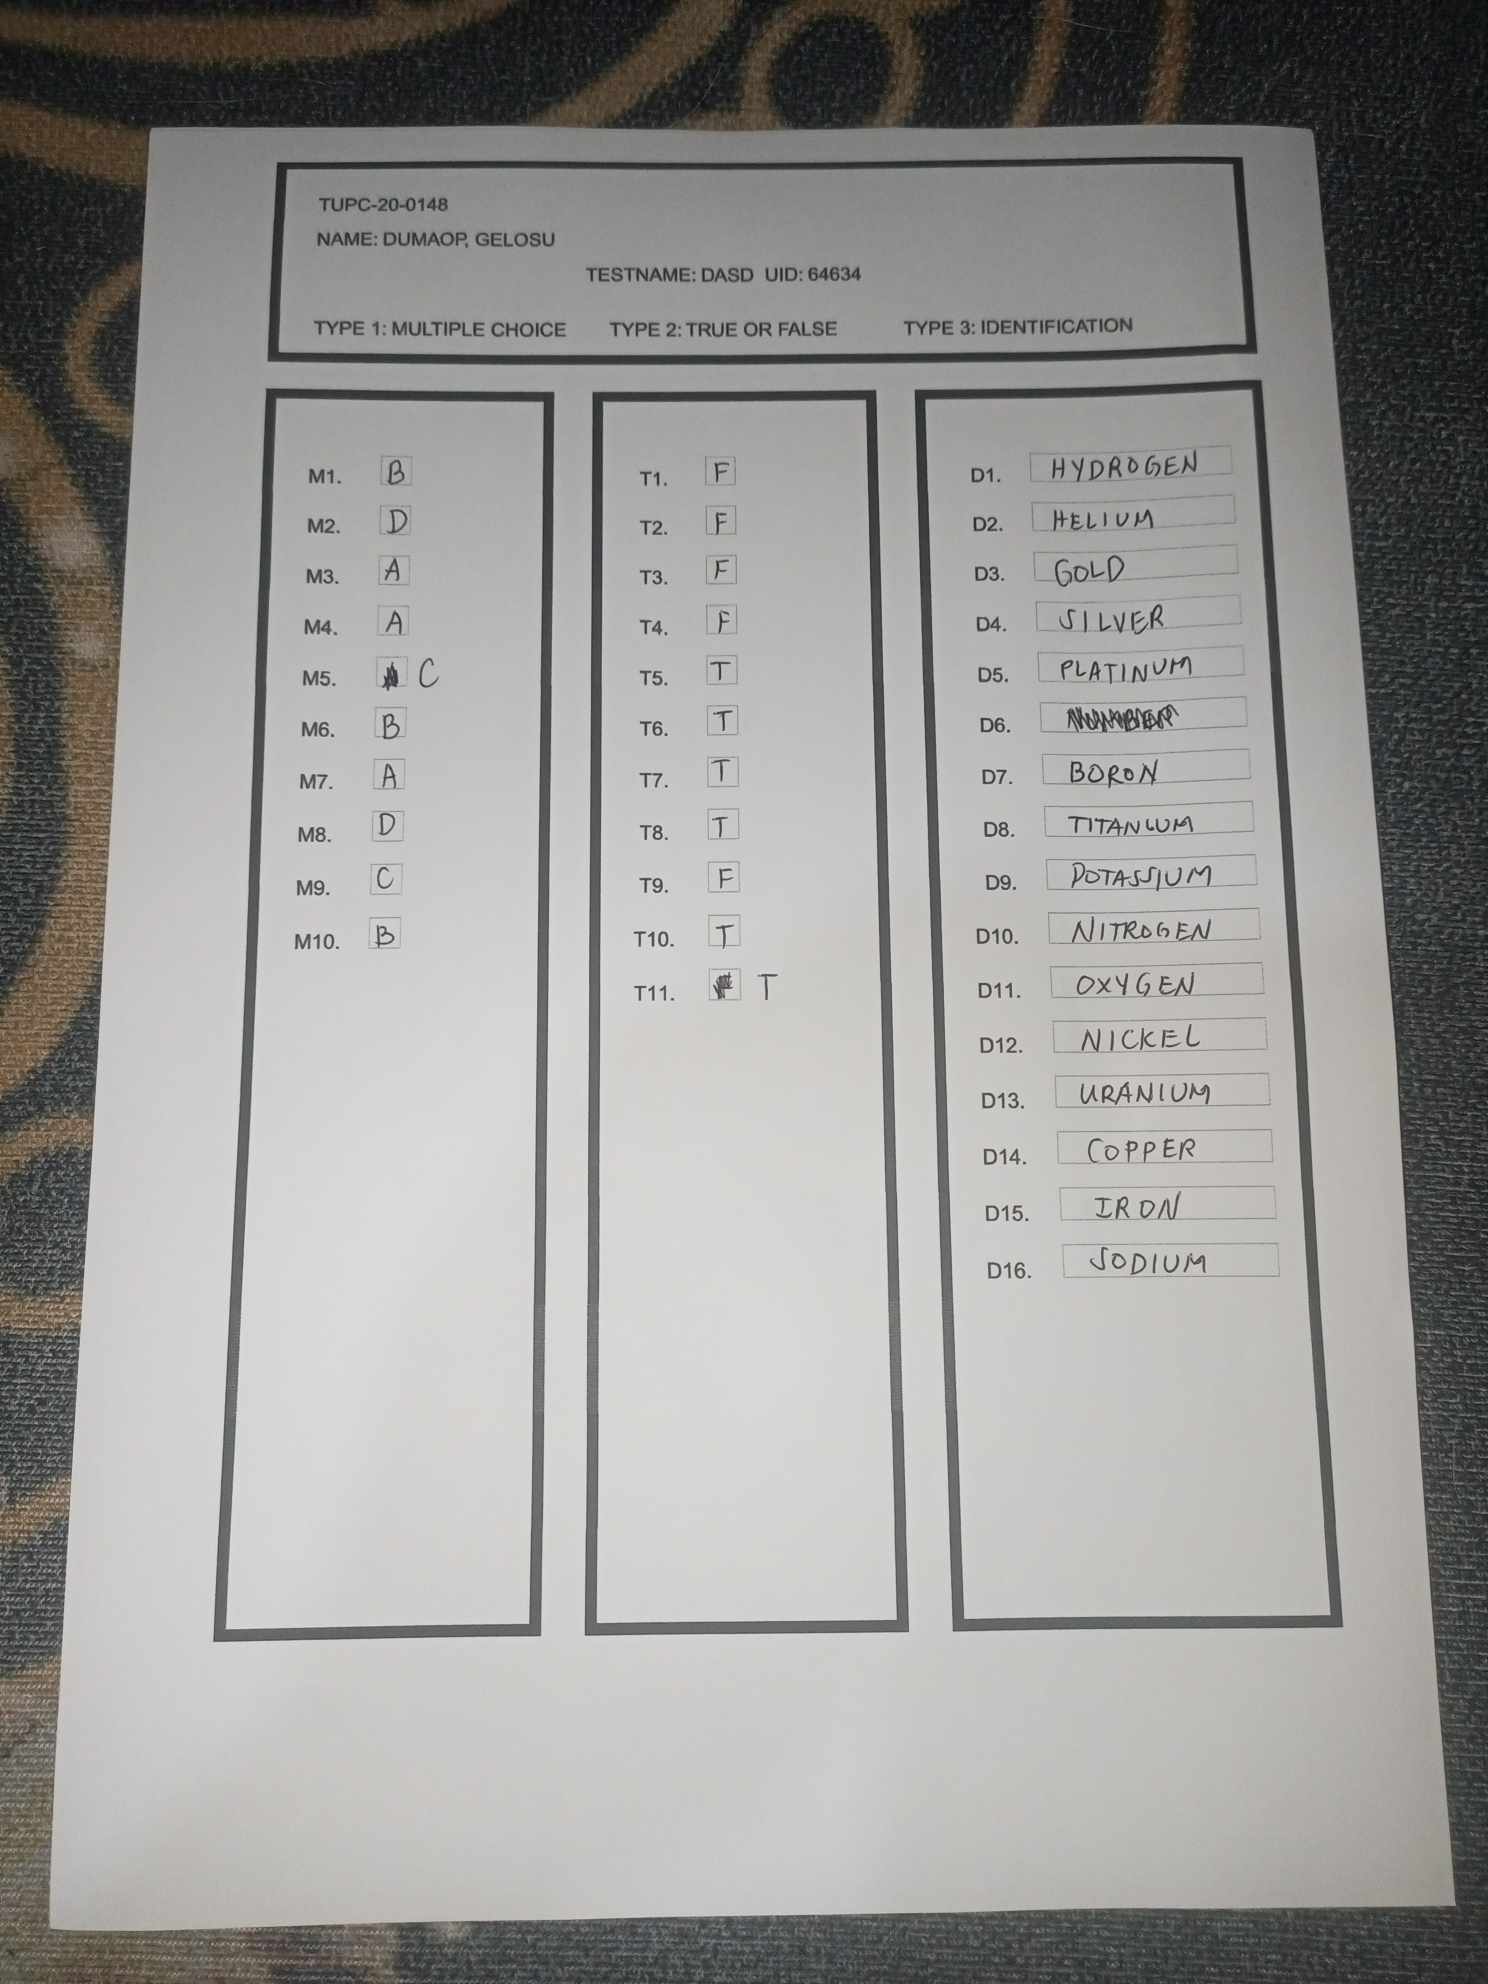 TUPC-20-0148
NAME: DUMAOP, GELOSU
TESTNAME: DASD UID: 64634
TYPE 1: MULTIPLE CHOICE TYPE 2: TRUE OR FALSE TYPE 3: IDENTIFICATION
M1. B
M2. D
M3. A
M4. A
M5. C
M6. B
M7. A
M8. D
M9. C
M10. B
T1. F
T2. F
T3. F
T4. F
T5. T
T6. T
T7. T
T8. T
T9. F
T10. T
T11. T
D1. HYDROGEN
D2. HELIUM
D3. GOLD
D4. SILVER
D5. PLATINUM
D6.
D7. BORON
D8. TITANIUM
D9. POTASSIUM
D10. NITROGEN
D11. OXYGEN
D12. NICKEL
D13. URANIUM
D14. COPPER
D15. IRON
D16. SODIUM